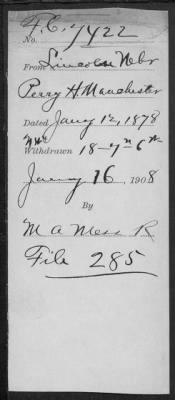 F.C.
No. 7422
From Lincoln Nebr
Perry H. Manchester
Dated Jany 12, 1878
Withdrawn 18-7
Jany 16, 1908
By
M A Mess R
File 285